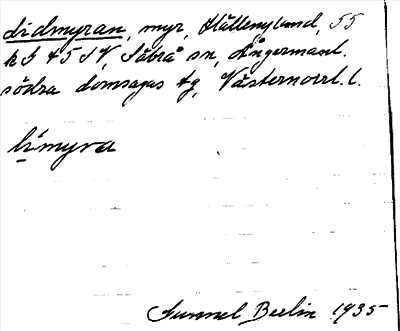 Lidmyran, myr, Hällenyland, 55
h I 45 SV, Säbrå sn, Ångermanl.
södra domsagas tg, Västernorrl. l.
limyra
Gunnel Berlin 1935